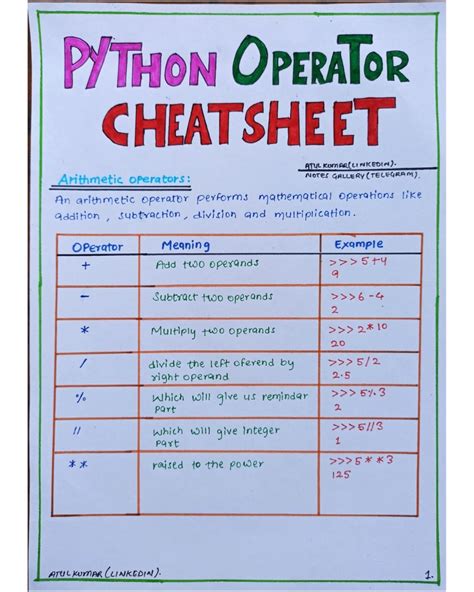 PYTHON OPERATOR
CHEATSHEET
ATULKUMAR(LINKEDIN).
NOTES GALLERY(TELEGRAM).
Arithmetic operators:
An arithmetic operator performs mathematical operations like
addition, subtraction, division and multiplication.
Operator Meaning Example
+ Add two operands >>>5+4
9
- Subtract two operands >>>6-4
2
* Multiply two operands >>>2*10
20
/ divide the left oferend by >>>5/2
right operand 2.5
% Which will give us remindar >>>5%3
part 2
// which will give integer >>>5//3
part 1
** raised to the power >>>5**3
125
ATULKUMAR(LINKEDIN). 1.